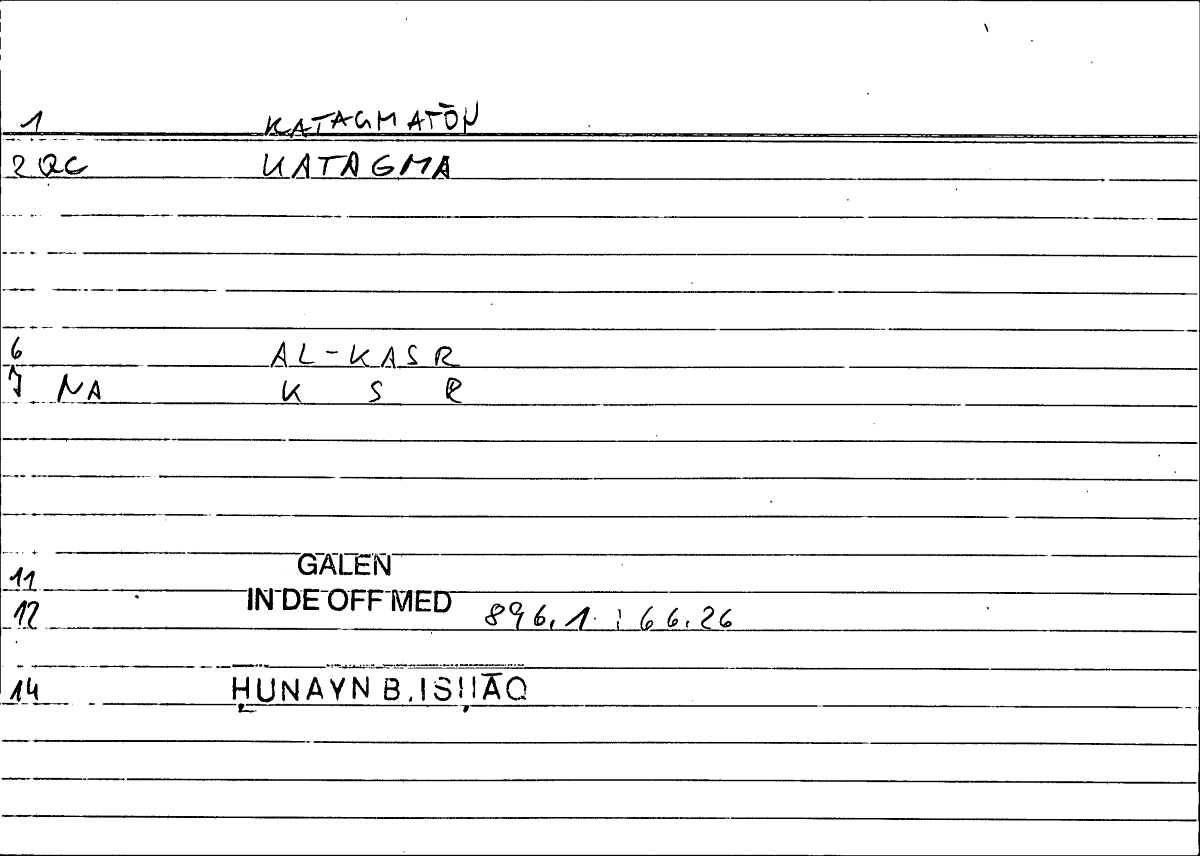 1 KATAGMATŌN
2 QC KATAGMA
6 AL-KASR
7 NA K S R
11 GALEN
12 IN DE OFF MED 896.1 ; 66.26
14 ḤUNAYN B. ISḤĀQ